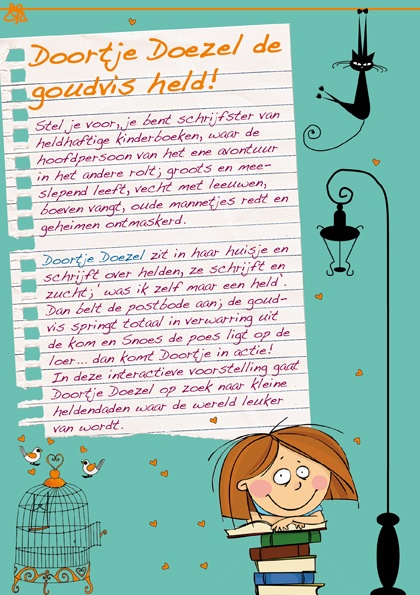 Doortje Doezel de
goudvis held!
Stel je voor, je bent schrijfster van
heldhaftige kinderboeken, waar de
hoofdpersoon van het ene avontuur
in het andere rolt; groots en mee-
slepend leeft, vecht met leeuwen,
boeven vangt, oude mannetjes redt en
geheimen ontmaskerd.
Doortje Doezel zit in haar huisje en
schrijft over helden, ze schrijft en
zucht;' was ik zelf maar een held'.
Dan belt de postbode aan; de goud-
vis springt totaal in verwarring uit
de kom en Snoes de poes ligt op de
loer... dan komt Doortje in actie!
In deze interactieve voorstelling gaat
Doortje Doezel op zoek naar kleine
heldendaden waar de wereld leuker
van wordt.